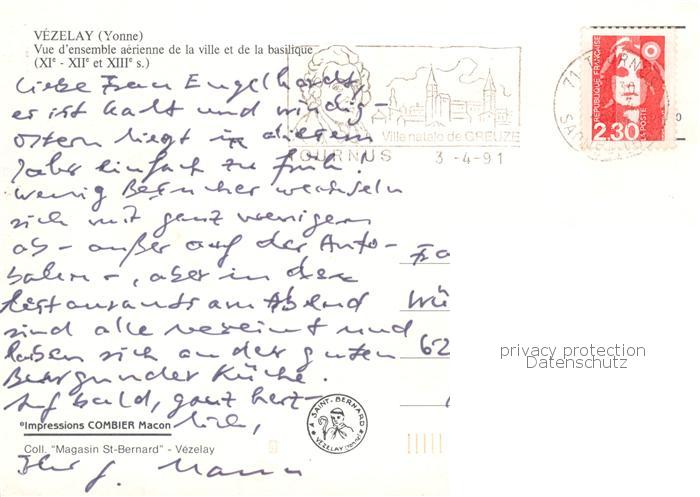 VÉZELAY (Yonne)
Vue d'ensemble aérienne de la ville et de la basilique
(XIe - XIIe et XIIIe s.)
Liebe Frau Engelhardt,
es ist kalt und windig -
Ostern liegt in diesem
Jahr einfach zu früh!
Wenig Besucher wechseln
sich mit ganz wenigen
ab - außer auf der Auto-
bahn -, aber in den
Restaurants am Abend
sind alle vereint und
laben sich an der guten
Burgunder Küche.
Auf bald, ganz herz-
lich,
Ihr J. Mann
Ville natale de GREUZE
TOURNUS 3-4-91
71 TOURNUS
RÉPUBLIQUE FRANÇAISE
2,30
LA POSTE
Fra
Wü
62
privacy protection
Datenschutz
*Impressions COMBIER Macon
Coll. "Magasin St-Bernard" - Vézelay
A SAINT-BERNARD
VÉZELAY